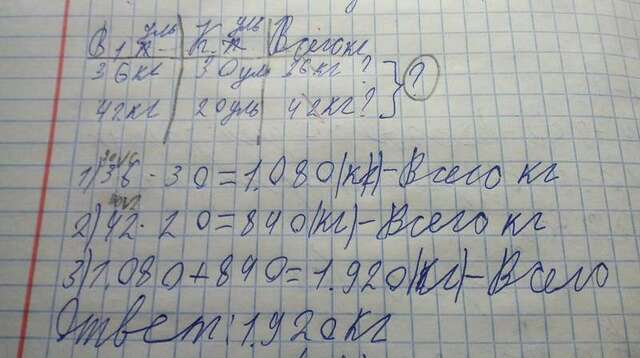 В 1 уль К. уль Всего кг
36кг 30уль 36кг ?
42кг 20уль 42кг? ?
1) 36 · 30=1.080(кг)-Всего кг
2) 42 · 20=840(кг)-Всего кг
3) 1.080+840=1.920(кг)-Всего
Ответ: 1.920кг